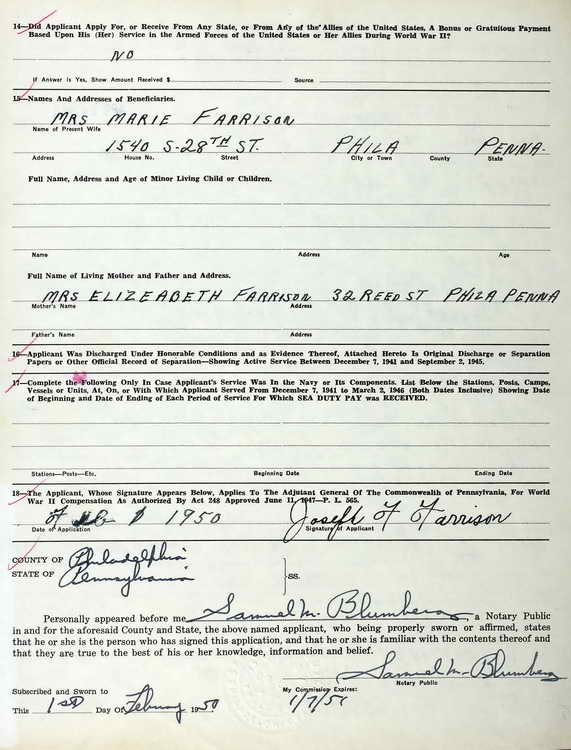 14—Did Applicant Apply For, or Receive From Any State, or From Any of the Allies of the United States, A Bonus or Gratuitous Payment
Based Upon His (Her) Service in the Armed Forces of the United States or Her Allies During World War II?
NO
If Answer is Yes, Show Amount Received $ Source
15—Names And Addresses of Beneficiaries.
MRS MARIE FARRISON
Name of Present Wife
1540 S-28TH ST. PHILA PENNA.
Address House No. Street City or Town County State
Full Name, Address and Age of Minor Living Child or Children.
Name Address Age
Full Name of Living Mother and Father and Address.
MRS ELIZEABETH FARRISON 32 REED ST PHILA PENNA
Mother's Name Address
Father's Name Address
16—Applicant Was Discharged Under Honorable Conditions and as Evidence Thereof, Attached Hereto Is Original Discharge or Separation
Papers or Other Official Record of Separation—Showing Active Service Between December 7, 1941 and September 2, 1945.
17—Complete the Following Only In Case Applicant's Service Was In the Navy or Its Components. List Below the Stations, Posts, Camps,
Vessels or Units, At, On, or With Which Applicant Served From December 7, 1941 to March 2, 1946 (Both Dates Inclusive) Showing Date
of Beginning and Date of Ending of Each Period of Service For Which SEA DUTY PAY was RECEIVED.
Stations—Posts—Etc. Beginning Date Ending Date
18—The Applicant, Whose Signature Appears Below, Applies To The Adjutant General Of The Commonwealth of Pennsylvania, For World
War II Compensation As Authorized By Act 248 Approved June 11, 1947—P. L. 565.
1950 Joseph F Farrison
Date of Application Signature of Applicant
COUNTY OF Philadelphia
STATE OF Pennsylvania
}ss.
Personally appeared before me Samuel M. Blumberg, a Notary Public
in and for the aforesaid County and State, the above named applicant, who being properly sworn or affirmed, states
that he or she is the person who has signed this application, and that he or she is familiar with the contents thereof and
that they are true to the best of his or her knowledge, information and belief.
Samuel M. Blumberg
Notary Public
Subscribed and Sworn to My Commission Expires:
This 1st Day Of February 1950 1/7/51